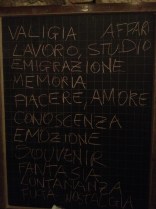 VALIGIA AFFARI
LAVORO, STUDIO
EMIGRAZIONE
MEMORIA
PIACERE, AMORE
CONOSCENZA
EMOZIONE
SOUVENIR
FANTASIA
LONTANANZA
NOSTALGIA